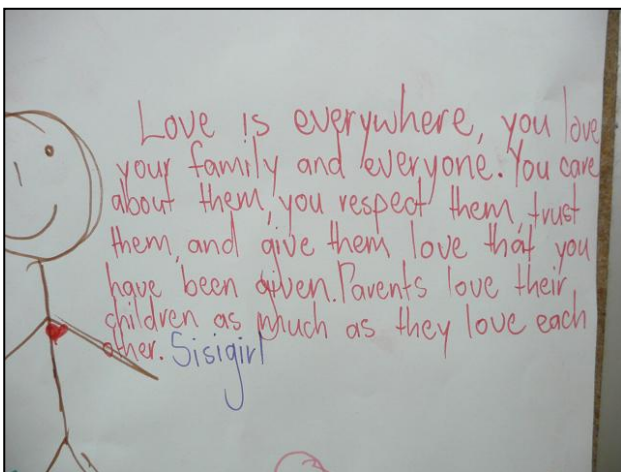 Love is everywhere, you love
your family and everyone. You care
about them, you respect them, trust
them, and give them love that you
have been given. Parents love their
children as much as they love each
other. Sisigirl